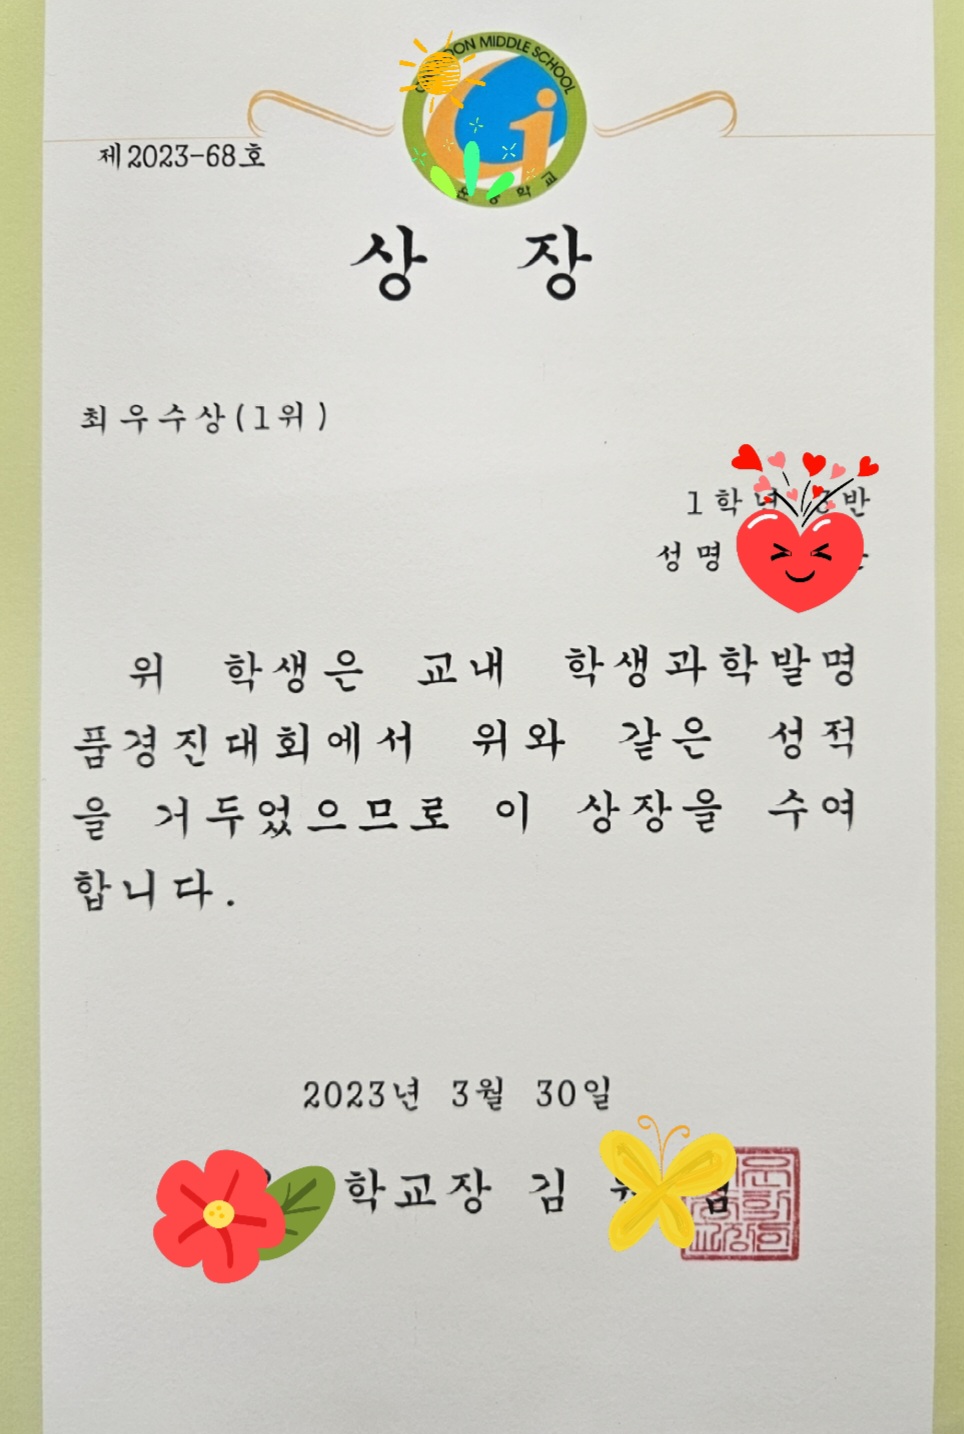 MIDDLE SCHOOL
제2023-68호
상 장
최우수상(1위)
1학년 반
성명
위 학생은 교내 학생과학발명
품경진대회에서 위와 같은 성적
을 거두었으므로 이 상장을 수여
합니다.
2023년 3월 30일
학교장 김